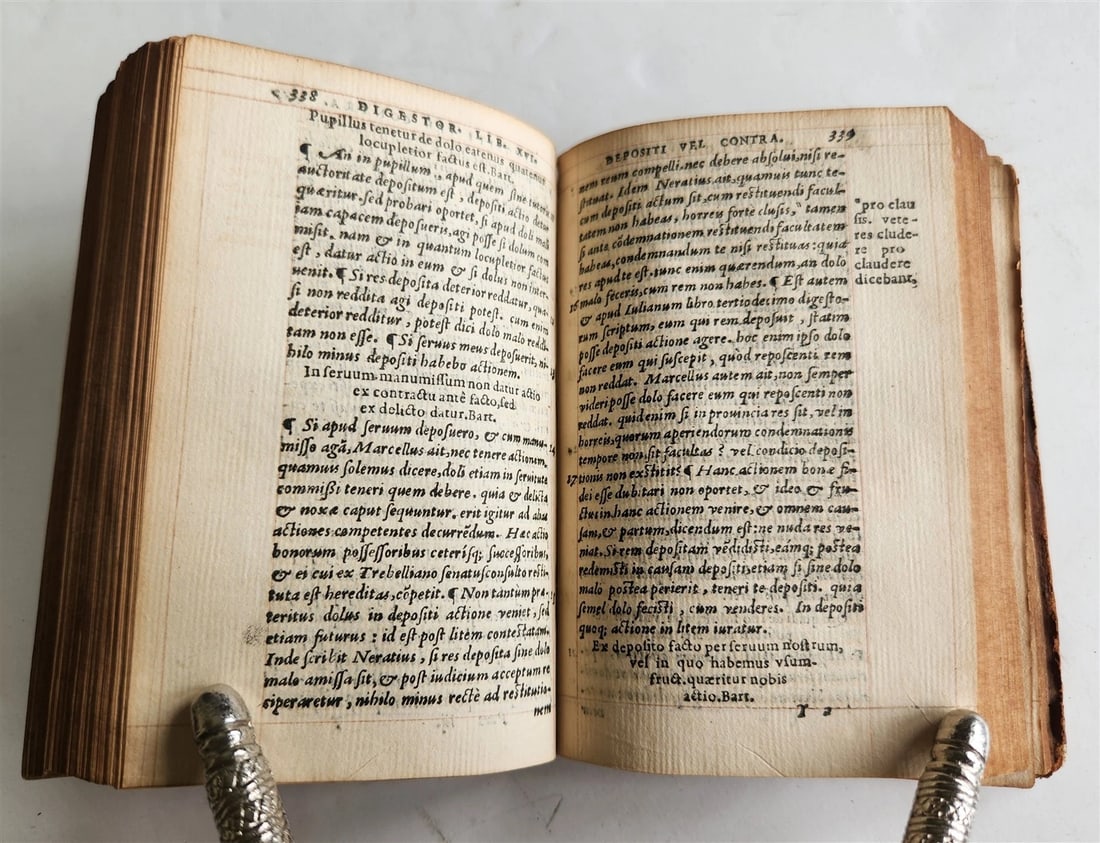 338 DIGESTOR. LIB. XVI.
Pupillus tenetur de dolo eatenus quatenus
locupletior factus est. Bart.
¶ An in pupillum, apud quem sine tutoris
auctoritate depositum est, depositi actio detur
quæritur. sed probari oportet, si apud doli mali
iam capacem deposueris, agi posse si dolum com
misit. nam & in quantum locupletior factus
est, datur actio in eum & si dolus non inter-
uenit. ¶ Si res deposita deterior reddatur, quasi
si non reddita agi depositi potest. cum enim
deterior redditur, potest dici dolo malo reddi-
tam non esse. ¶ Si seruus meus deposuerit, ni-
hilo minus depositi habebo actionem.
In seruum manumissum non datur actio
ex contractu antè facto, sed
ex delicto datur. Bart.
¶ Si apud seruum deposuero, & cum manu-
misso agā, Marcellus ait, nec tenere actionem.
quamuis solemus dicere, doli etiam in seruitute
commissi teneri quem debere. quia & delicta
& noxæ caput sequuntur. erit igitur ad alias
actiones competentes decurrēdum. Hæc actio
bonorum possessoribus ceterisq; successoribus,
& ei cui ex Trebelliano senatusconsulto resti-
tuta est hereditas, cōpetit. ¶ Non tantum præ-
teritus dolus in depositi actione veniet, sed
etiam futurus : id est post litem contestatam.
Inde scribit Neratius, si res deposita sine dolo
malo amissa sit, & post iudicium acceptum re
ciperaretur, nihilo minus rectè ad restitutio-
nem
DEPOSITI VEL CONTRA. 339
nem reum compelli. nec debere absolui, nisi re-
stituat. Idem Neratius ait, quamuis tunc te-
cum depositi actum sit, cum restituendi facul-
tatem non habeas, horreis forte clusis, " tamen
si ante cōdemnationem restituendi facultatem
habeas, condemnandum te nisi restituas: quia
res apud te est. tunc enim quærendum, an dolo
malo feceris, cum rem non habes. ¶ Est autem
16 & apud Iulianum libro tertiodecimo digesto-
rum scriptum, eum qui rem deposuit, statim
posse depositi actione agere. hoc enim ipso dolo
facere eum qui suscepit, quòd reposcenti rem
non reddat. Marcellus autem ait, non semper
videri posse dolo facere eum qui reposcenti non
reddat. quid enim si in prouincia res sit, vel in
horreis, quorum aperiendorum condemnationis
tempore non sit facultas ? vel condicio deposi-
17 tionis non exstitit? ¶ Hanc actionem bonæ fi-
dei esse dubitari non oportet, & ideo & fru-
ctus in hanc actionem venire, & omnem cau-
sam, & partum, dicendum est: ne nuda res ve-
niat. Si rem depositam vēdidisti, eámq; postea
redemisti in causam depositi, etiam si sine dolo
malo postea perierit, teneri te depositi. quia
semel dolo fecisti, cum venderes. In depositi
quoq; actione in litem iuratur.
Ex deposito facto per seruum nostrum,
vel in quo habemus vsum-
fruct. quæritur nobis
actio. Bart.
Y 2
"pro clau
sis. vete-
res clude-
re pro
claudere
dicebant,